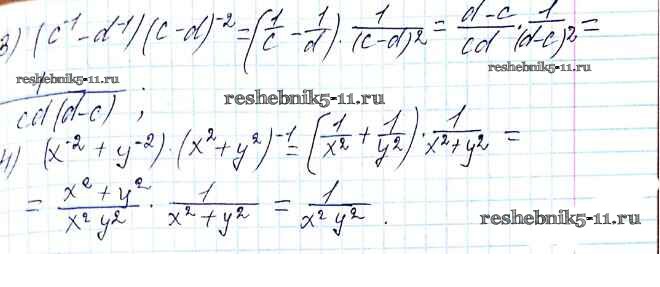 3) (c⁻¹ - d⁻¹)(c - d)⁻² = (1/c - 1/d) · 1/(c-d)² = (d-c)/cd · 1/(d-c)² =
reshebnik5-11.ru reshebnik5-11.ru
1/(cd(d-c)) ;
reshebnik5-11.ru
4) (x⁻² + y⁻²) · (x² + y²)⁻¹ = (1/x² + 1/y²) · 1/(x² + y²) =
= (x² + y²)/(x² y²) · 1/(x² + y²) = 1/(x² y²) .
reshebnik5-11.ru